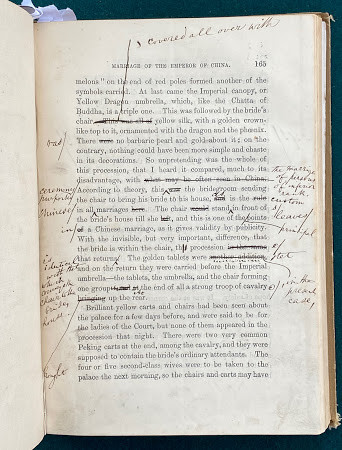 covered all over with
MARRIAGE OF THE EMPEROR OF CHINA. 165
melons" on the end of red poles formed another of the
symbols carried. At last came the Imperial canopy, or
Yellow Dragon umbrella, which, like the Chatta of
Buddha, is a triple one. This was followed by the bride's
chair. This was all of yellow silk, with a golden crown-
like top to it, ornamented with the dragon and the phœnix.
There were no barbaric pearl and gold about it; on the
contrary, nothing could have been more simple and chaste
in its decorations. So unpretending was the whole of
this procession, that I heard it compared, much to its
disadvantage, with what may be often seen in China.
According to theory, this was the bridegroom sending
the chair to bring his bride to his house, and is the rule
in all marriages here. The chair stand in front of
the bride house till she left, and this is one of the points
of a Chinese marriage, as it gives validity by publicity.
With the invisible, but very important, difference, that
the bride is within the chair, the procession in the same
that returns. The golden tablets were another addition,
and on the return they were carried before the Imperial
umbrella—the tablets, the umbrella, and the chair forming
one group and at the end of all a strong troop of cavalry
bringing up the rear.
Brilliant yellow carts and chairs had been seen about
the palace for a few days before, and were said to be
for the ladies of the Court, but none of them appeared in the
procession that night. There were two very common
Peking carts at the end, among the cavalry, and they were
supposed to contain the bride's ordinary attendants. The
four or five second-class wives were to be taken to the
palace the next morning, so the chairs and carts may have
was
ceremony
Chinese
in
the marriage
of persons
of inferior
rank
custom
leaves
of
not
in the
present
case,
house.